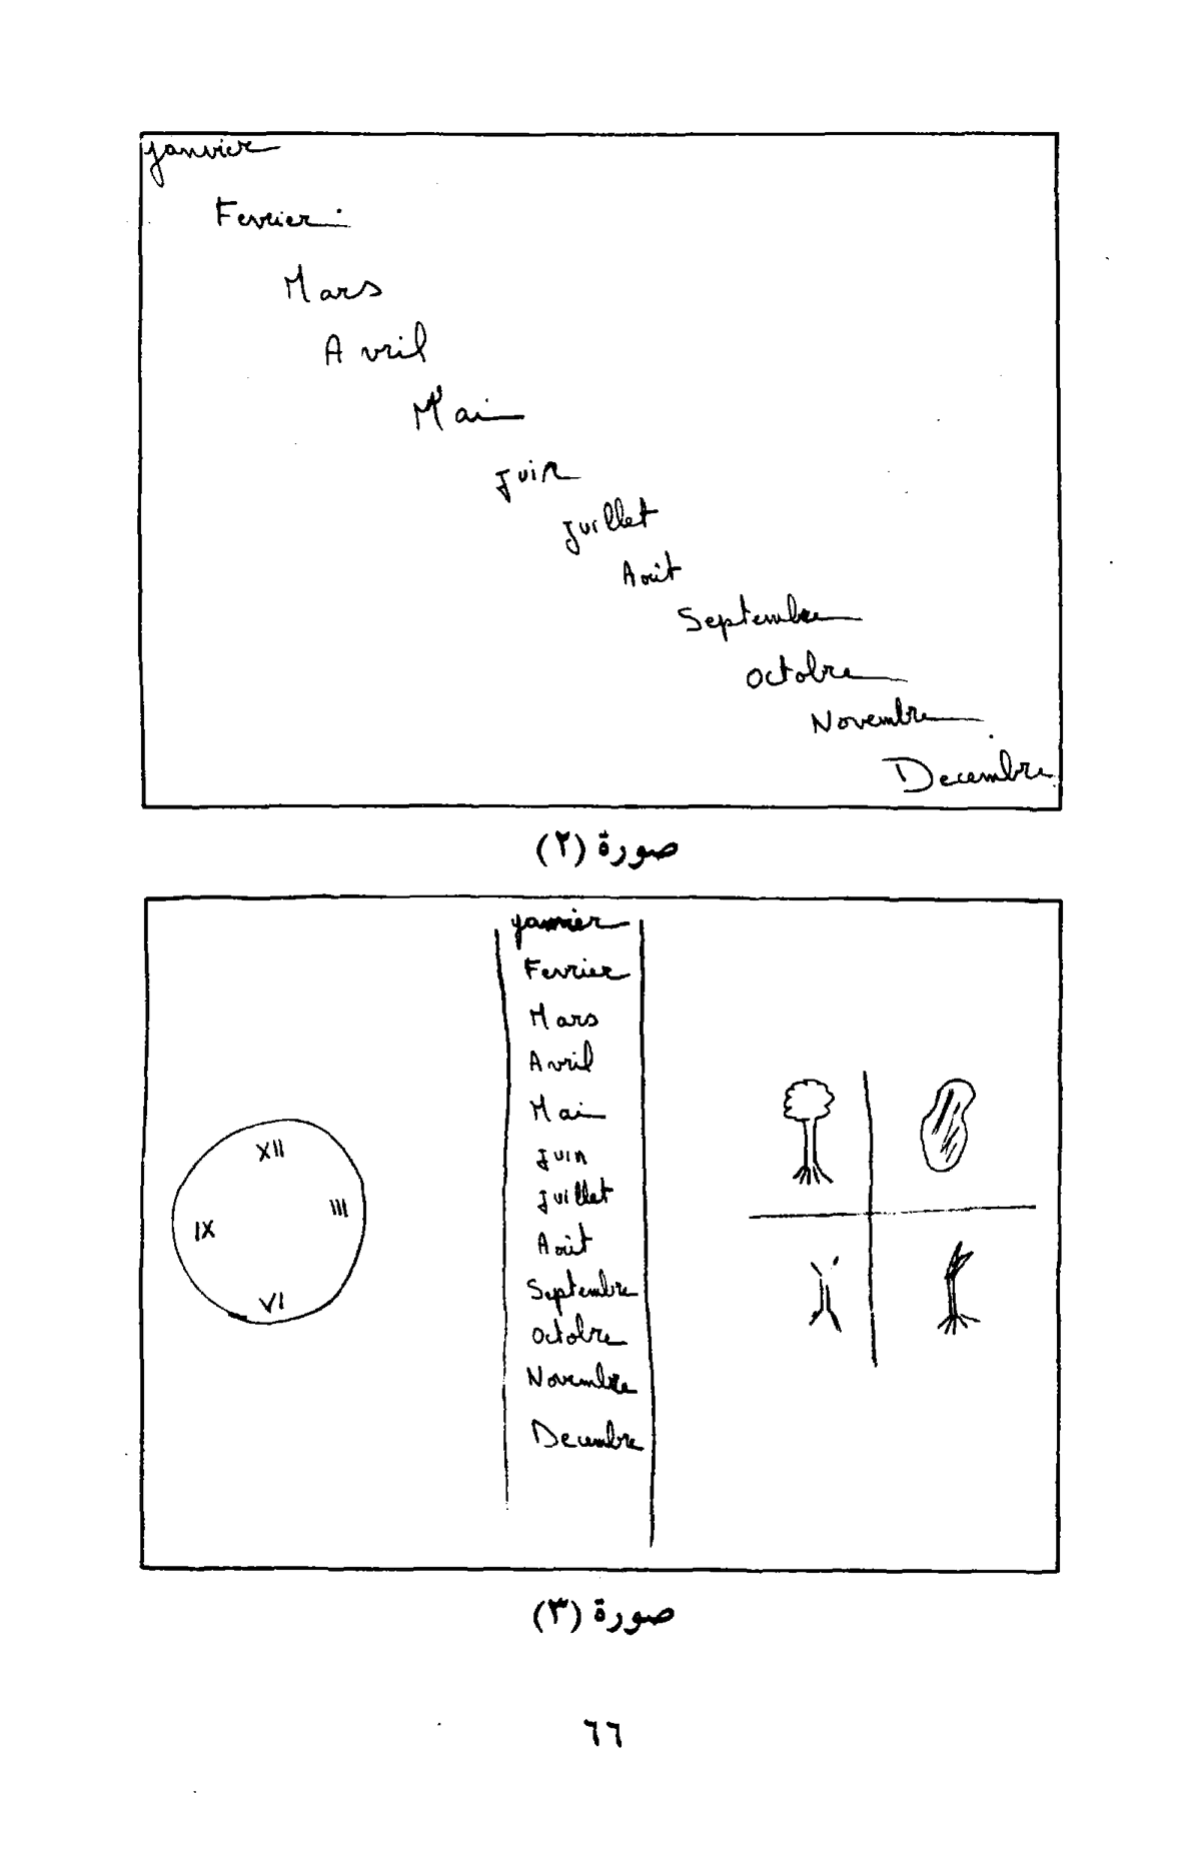 janvier
Fevrier
Mars
Avril
Mai
juin
juillet
Août
Septembre
Octobre
Novembre
Decembre
صورة (٢)
janvier
Fevrier
Mars
Avril
Mai
juin
juillet
Août
Septembre
Octobre
Novembre
Decembre
XII
III
IX
VI
صورة (٣)
٦٦